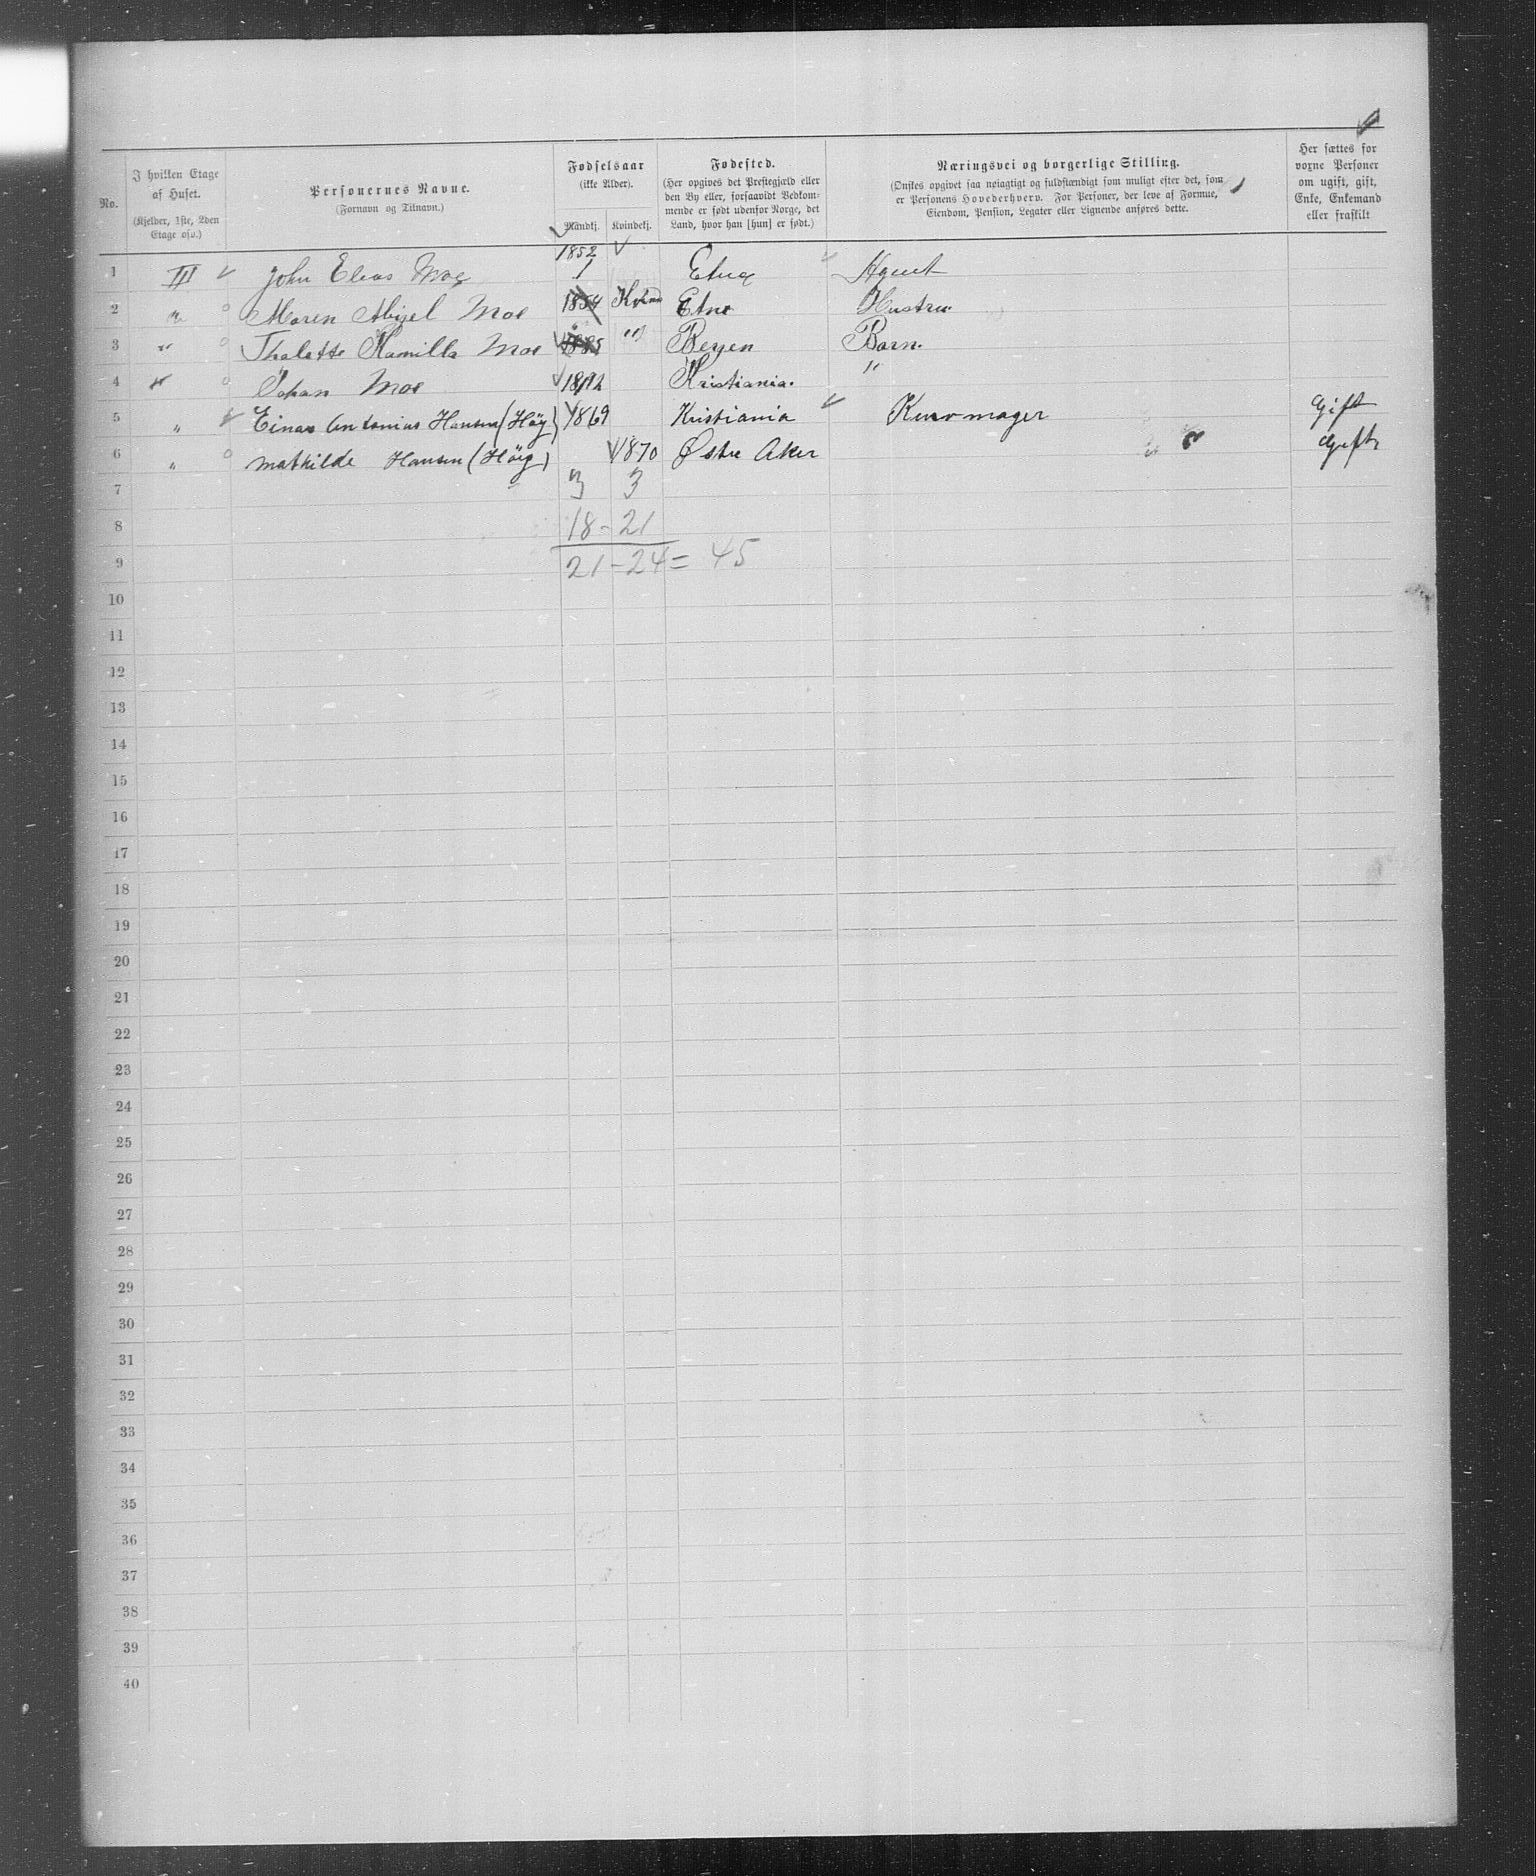 No. | I hvilken Etage af Huset. (Kjelder, 1ste, 2den Etage osv.) | Personernes Navne. (Fornavn og Tilnavn.) | Fødselsaar (ikke Alder). Mandkj. Kvindekj. | Fødested. (Her opgives det Prestegjæld eller den By eller, forsaavidt Vedkommende er født udenfor Norge, det Land, hvor han [hun] er født.) | Næringsvei og borgerlige Stilling. (Ønskes opgivet saa nøiagtigt og fuldstændigt som muligt efter det, som er Personens Hovederhverv. For Personer, der leve af Formue, Eiendom, Pension, Legater eller Lignende anføres dette. | Her sættes for voxne Personer om ugift, gift, Enke, Enkemand eller fraskilt
1 III ✓ John Elias Moe 1852 Etne ✓ Agent
2 " o Maren Abigel Moe 1854 Kvinde Etne Hustru
3 " o Thalette Kamilla Moe 1885 " Bergen Barn.
4 " o Johan Moe 1892 Kristiania. "
5 " ✓ Einar Antonius Hansen (Höy) 1869 Kristiania ✓ Kurvmager Gift
6 " o Mathilde Hansen (Höig) 1870 Østre Aker Gift
7 3 3
8 18 - 21
9 21 - 24 = 45
10
11
12
13
14
15
16
17
18
19
20
21
22
23
24
25
26
27
28
29
30
31
32
33
34
35
36
37
38
39
40